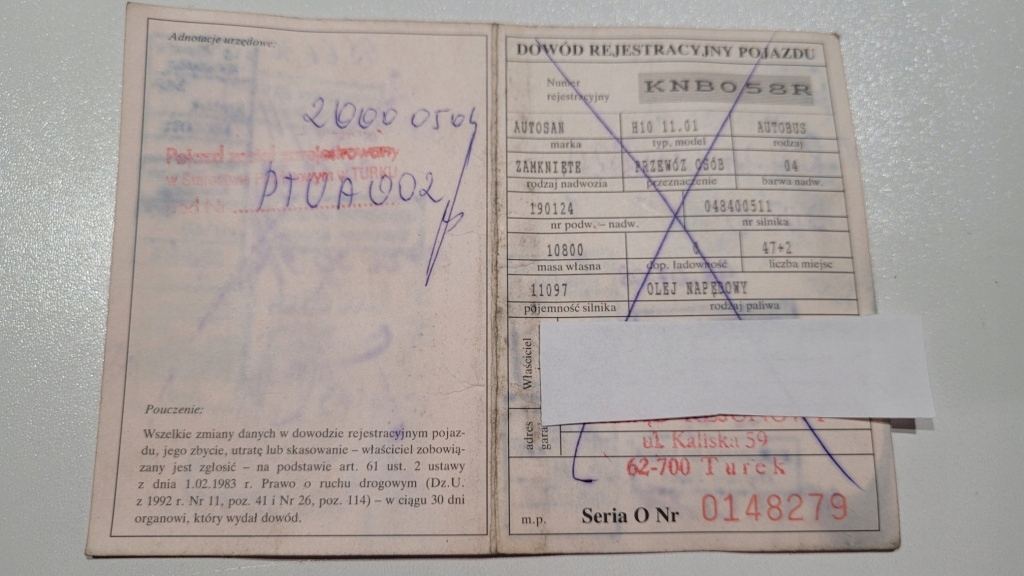 Adnotacje urzędowe:
2000 05 04
Pojazd został zarejestrowany
w TURKU
PTUA002
Pouczenie:
Wszelkie zmiany danych w dowodzie rejestracyjnym pojaz-
du, jego zbycie, utratę lub skasowanie – właściciel zobowią-
zany jest zgłosić – na podstawie art. 61 ust. 2 ustawy
z dnia 1.02.1983 r. Prawo o ruchu drogowym (Dz.U.
z 1992 r. Nr 11, poz. 41 i Nr 26, poz. 114) – w ciągu 30 dni
organowi, który wydał dowód.
DOWÓD REJESTRACYJNY POJAZDU
Numer
rejestracyjny
KNB058R
AUTOSAN H10 11.01 AUTOBUS
marka typ, model rodzaj
ZAMKNIĘTE PRZEWÓZ OSÓB 04
rodzaj nadwozia przeznaczenie barwa nadw.
190124 048400511
nr podw. – nadw. nr silnika
10800 47+2
masa własna dop. ładowność liczba miejsc
11097 OLEJ NAPĘDOWY
pojemność silnika rodzaj paliwa
Właściciel
adres
ul. Kaliska 59
62-700 Turek
m.p. Seria O Nr 0148279